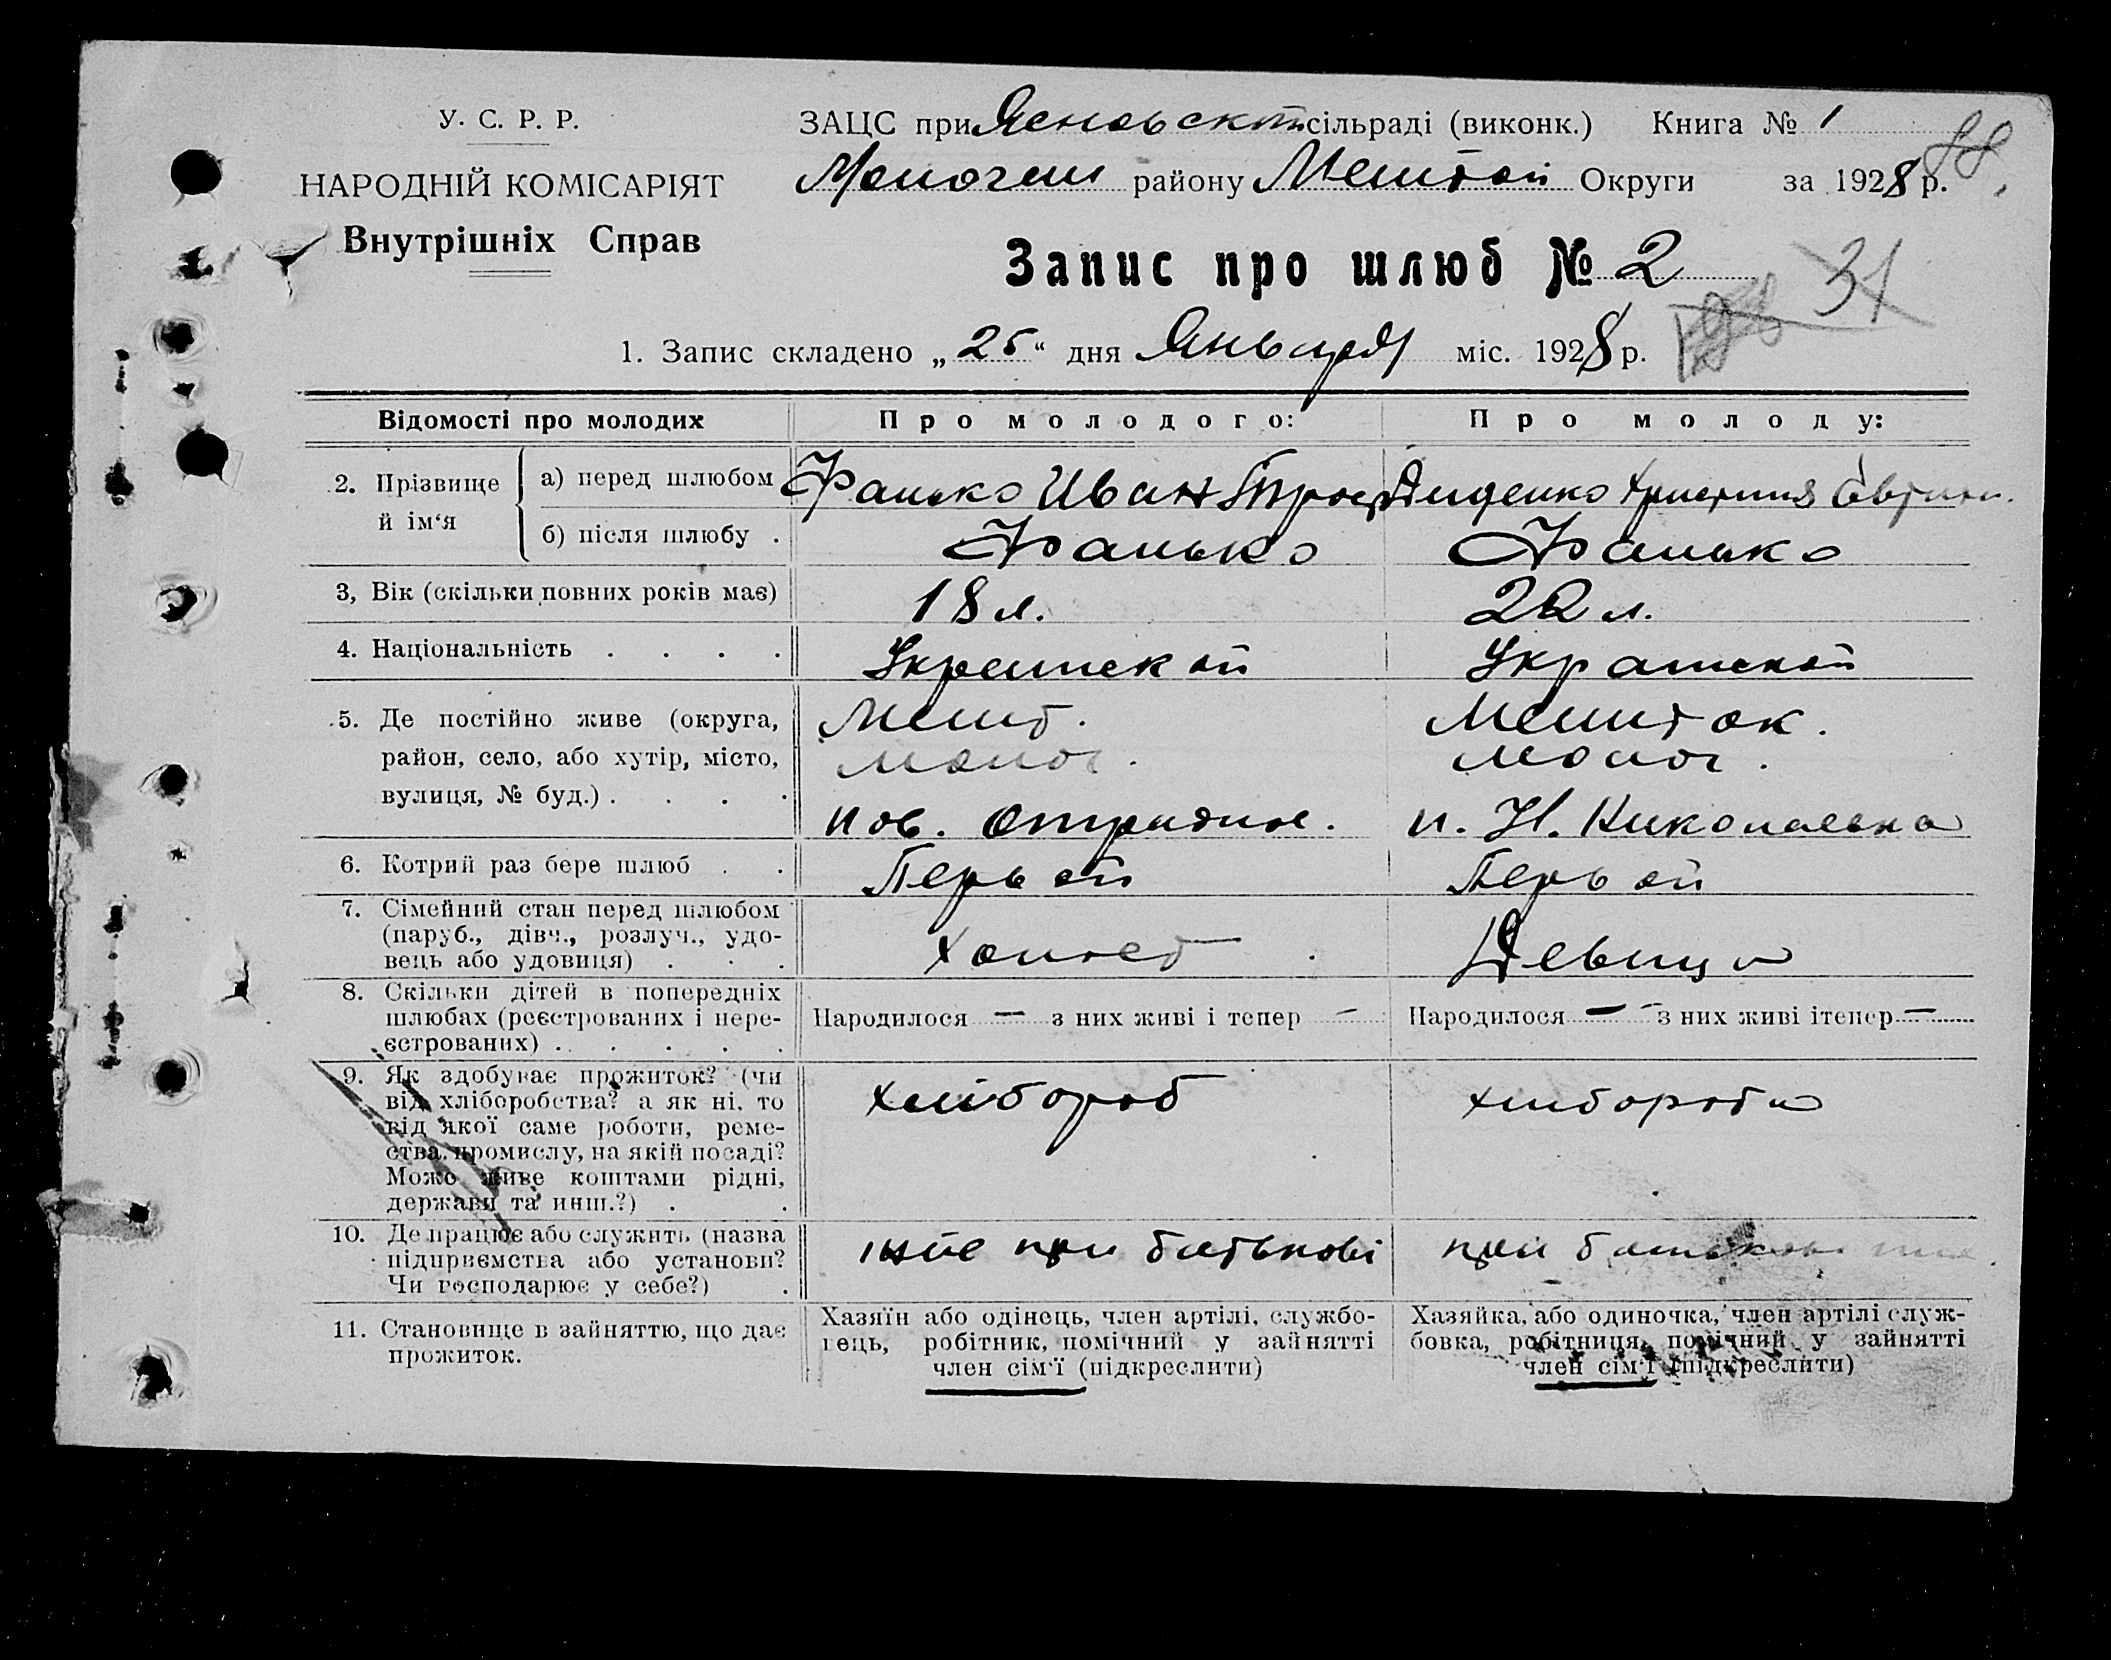 У. С. Р. Р.
НАРОДНІЙ КОМІСАРІЯТ
Внутрішніх Справ
ЗАЦС при Ясновской сільраді (виконк.) Книга № 1
району Округи за 1928 р.
88
Запис про шлюб № 2
31
1. Запис складено „25“ дня Января міс. 1928 р.
Відомості про молодих Про молодого: Про молоду:
2. Прізвище й ім‘я
а) перед шлюбом Фанько Иван Диденко Христина
б) після шлюбу . Фанько Фанько
3, Вік (скільки повних років має) 18 л. 22 л.
4. Національність . . . . Украинской
5. Де постійно живе (округа, Мелит. Мелиток.
район, село, або хутір, місто, Молоч. Молоч.
вулиця, № буд.) . . . . Нов. Отрадное. н. Н. Николаевка
6. Котрий раз бере шлюб . . Первой Первой
7. Сімейний стан перед шлюбом
(паруб., дівч., розлуч., удо-
вець або удовиця) . . . Холост Девица
8. Скільки дітей в попередніх
шлюбах (реєстрованих і нере-
єстрованих) . . . . . Народилося — з них живі і тепер — Народилося — з них живі і тепер —
9. Як здобуває прожиток? (чи
від хліборобства? а як ні, то
від якої саме роботи, реме-
ства, промислу, на якій посаді?
Може живе коштами рідні,
держави та инш.?) . . хлібороб хлібороби
10. Де працює або служить (назва
підприємства або установи?
Чи господарює у себе?) . при батькові при
11. Становище в зайняттю, що дає
прожиток.
Хазяїн або одінець, член артілі, службо-
вець, робітник, помічний у зайнятті
член сім‘ї (підкреслити)
Хазяйка, або одиночка, член артілі служ-
бовка, робітниця, помічний у зайнятті
член сім‘ї (підкреслити)